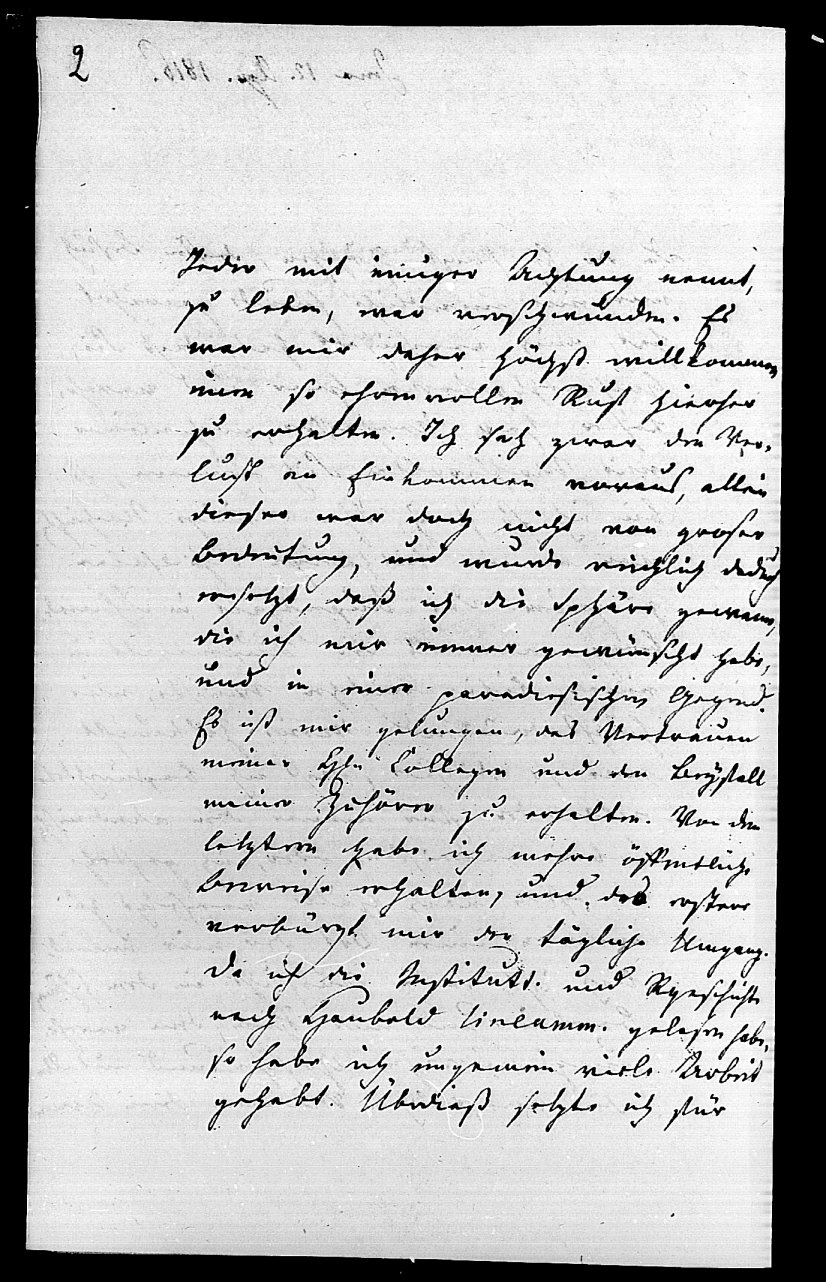 2
Jeder mit inniger Achtung nennt,
zu leben, war verschwunden. Es
war mir daher höchst willkommen
einen so ehrenvollen Ruf hierher
zu erhalten. Ich sah zwar den Ver-
lust an Einkommen voraus, allein
dieser war doch nicht von groser
Bedeutung, und wurde reichlich dadurch
ersetzt, daß ich die Sphäre gewann,
die ich mir immer gewünscht habe,
und in einer paradiesischen Gegend.
Es ist mir gelungen, das Vertrauen
meiner Hln Collegen und den Beyfall
meiner Zuhörer zu erhalten. Von den
letztern habe ich mehre öffentliche
Beweise erhalten, und das erstere
verbürgt mir der tägliche Umgang.
Da ich die Institutt. und Rgeschichte
nach Haubold lineamm. gelesen habe,
so habe ich ungemein viele Arbeit
gehabt. Überdieß setzte ich für